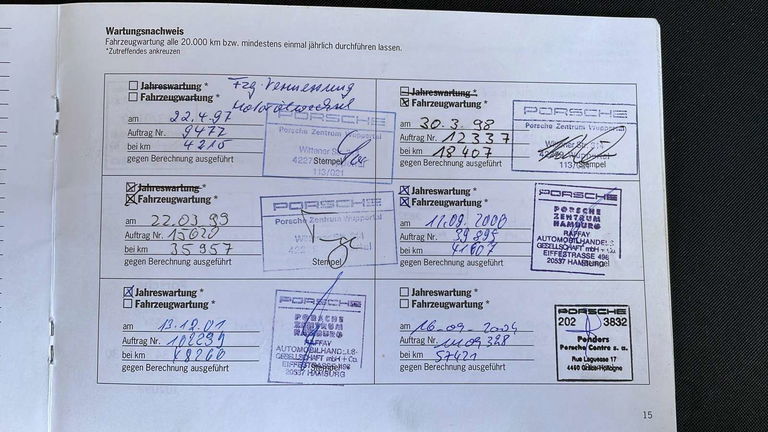 Wartungsnachweis
Fahrzeugwartung alle 20.000 km bzw. mindestens einmal jährlich durchführen lassen.
*Zutreffendes ankreuzen
Jahreswartung *
Fahrzeugwartung *
Fzg. Vermessung
Motorölwechsel
am 22.4.97
Auftrag Nr. 9477
bei km 4215
gegen Berechnung ausgeführt
PORSCHE
Porsche Zentrum Wuppertal
Wittener Str.
Stempel
113/021
Jahreswartung *
Fahrzeugwartung *
am 30.3.98
Auftrag Nr. 12337
bei km 18407
gegen Berechnung ausgeführt
PORSCHE
Porsche Zentrum Wuppertal
Stempel
113/021
Jahreswartung *
Fahrzeugwartung *
am 22.03.99
Auftrag Nr. 15020
bei km 35957
gegen Berechnung ausgeführt
PORSCHE
Porsche Zentrum Wuppertal
Stempel
Jahreswartung *
Fahrzeugwartung *
am 11.09.2000
Auftrag Nr. 39895
bei km 41607
gegen Berechnung ausgeführt
PORSCHE
PORSCHE
ZENTRUM
HAMBURG
RAFFAY
AUTOMOBILHANDELS
GESELLSCHAFT mbH + Co.
EIFFESTRASSE 498
20537 HAMBURG
Jahreswartung *
Fahrzeugwartung *
am 13.12.01
Auftrag Nr. 102239
bei km 48260
gegen Berechnung ausgeführt
PORSCHE
PORSCHE
ZENTRUM
HAMBURG
RAFFAY
AUTOMOBILHANDELS-
GESELLSCHAFT mbH + Co.
EIFFESTRASSE 498
20537 HAMBURG
Jahreswartung *
Fahrzeugwartung *
am 16-09-2004
Auftrag Nr.
bei km 57421
gegen Berechnung ausgeführt
PORSCHE
202 3832
Penders
Porsche Centre s. a.
Rue Laguesse 17
4460 Grâce-Hollogne
15